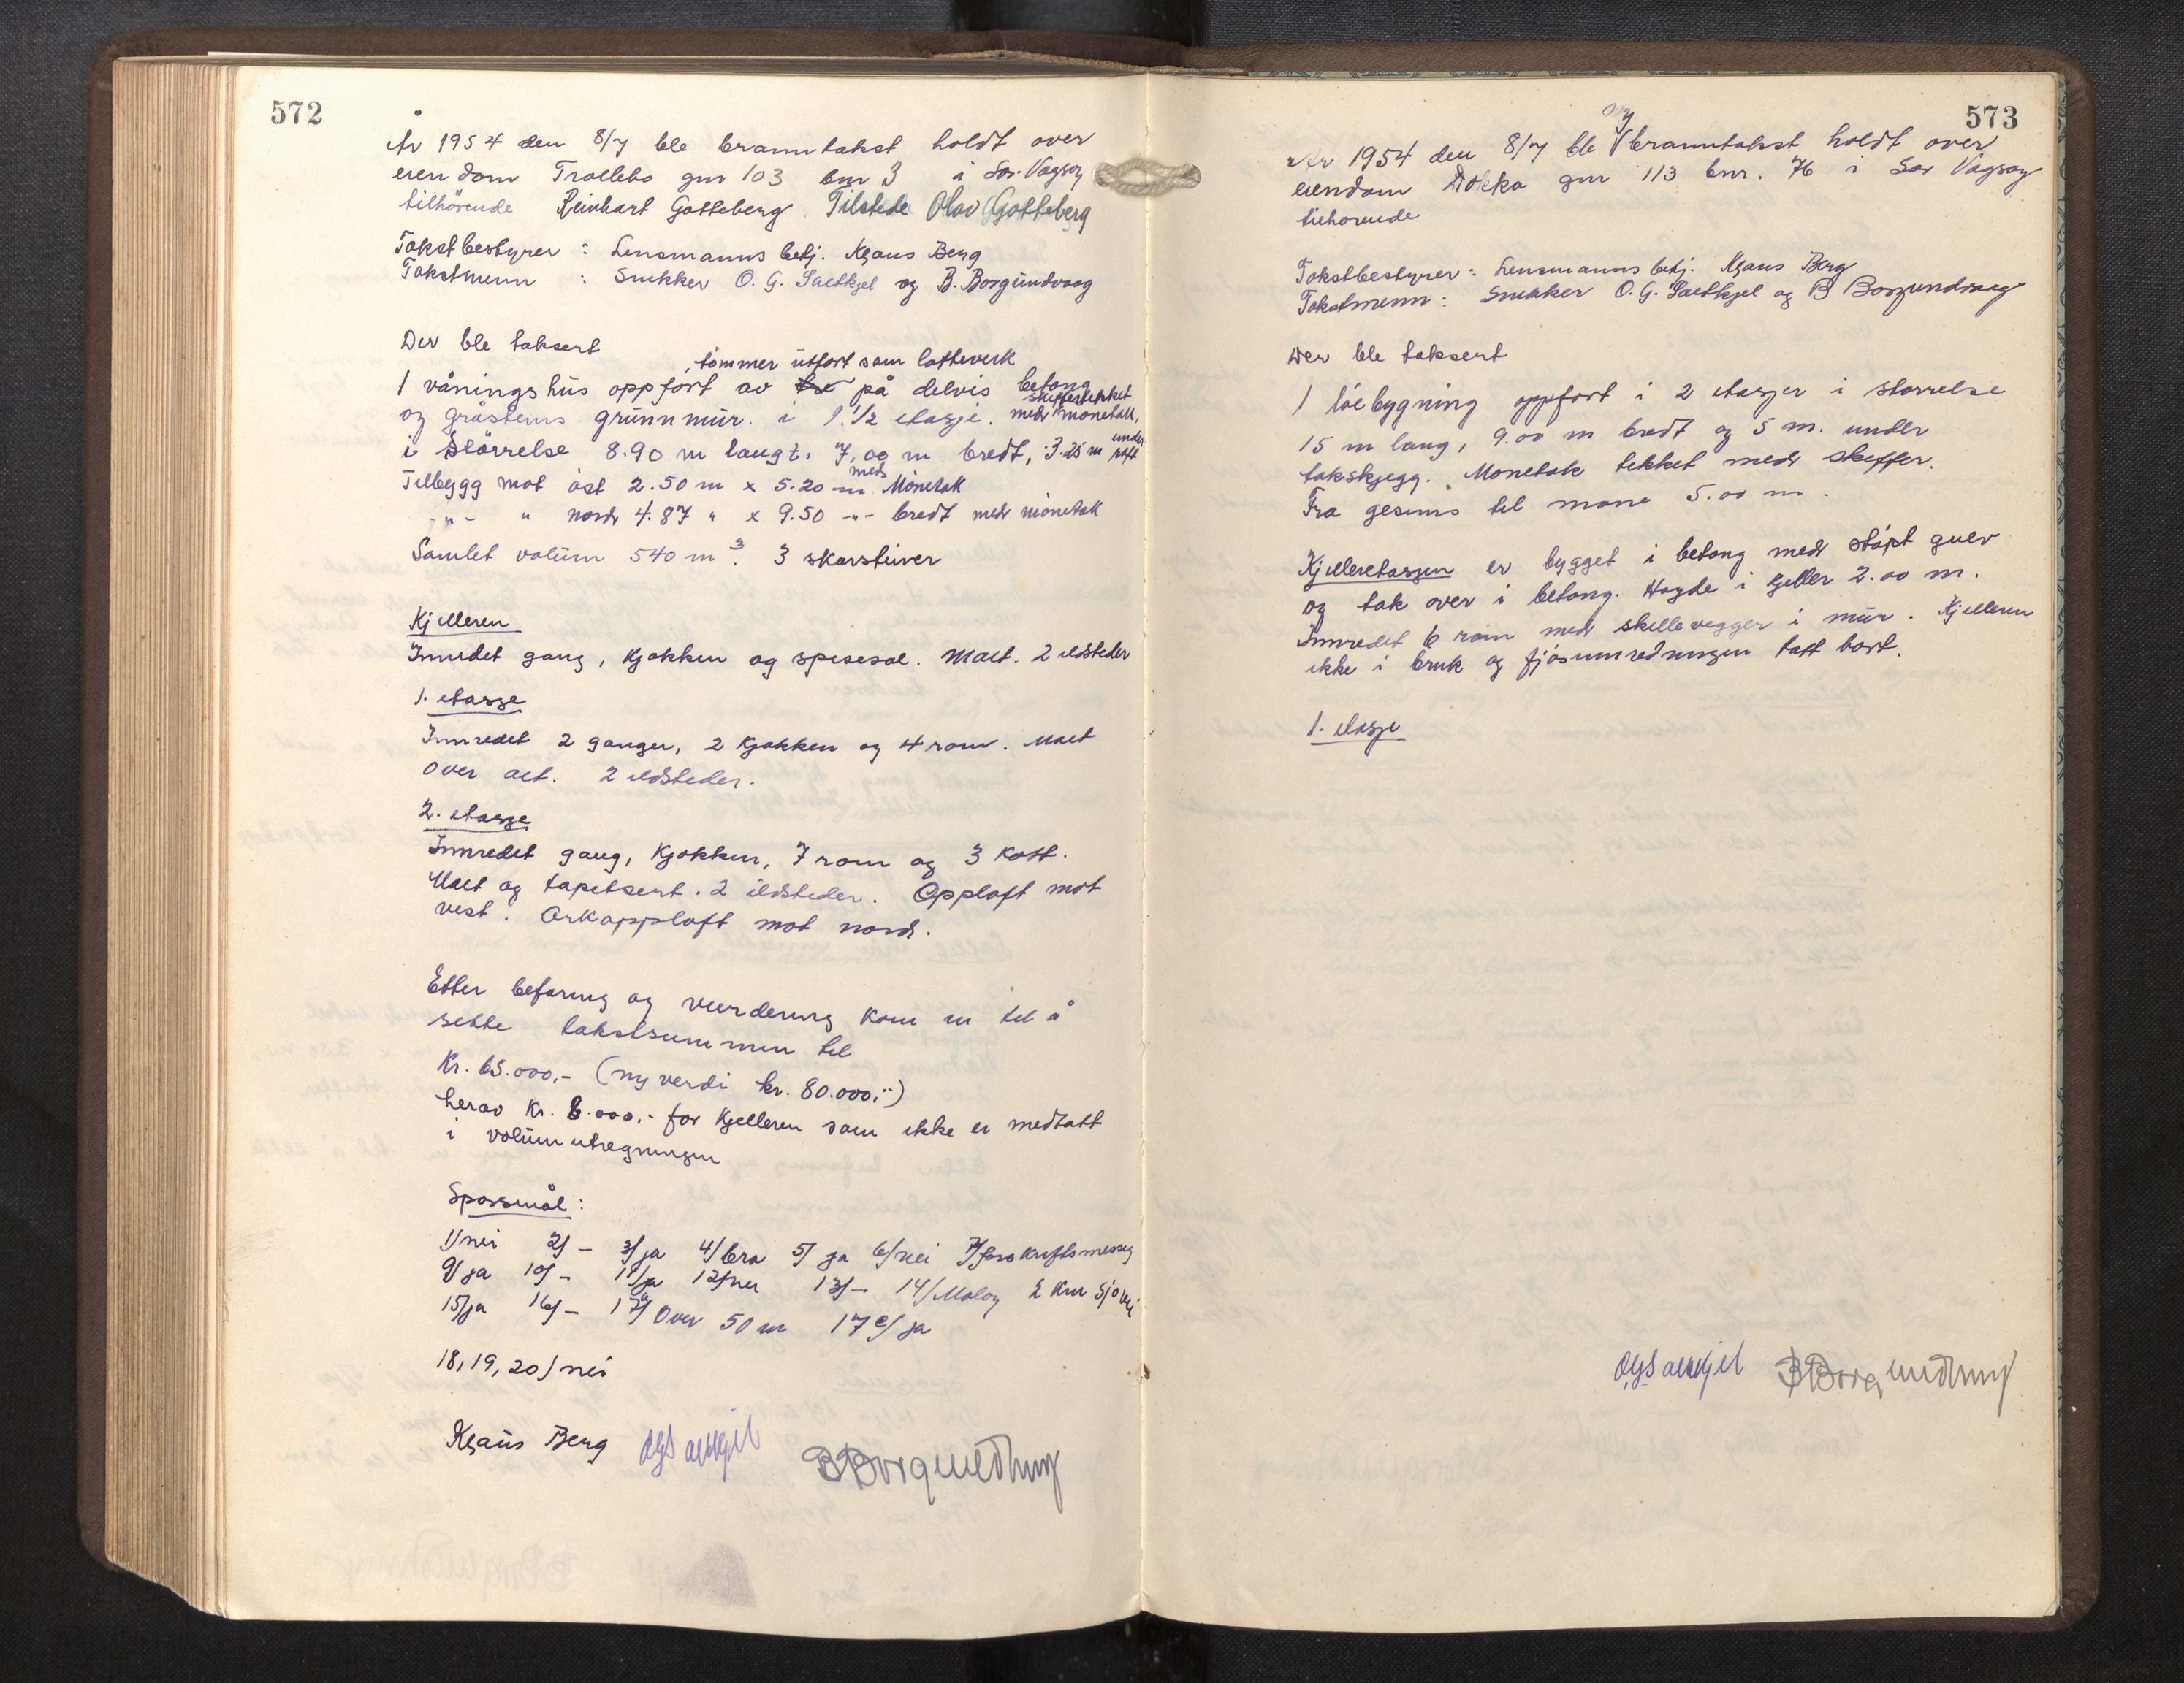 572
År 1954 den 8/7 ble branntakst holdt over
eiendom Trollebø gnr 103 bnr 3 i Sør-Vågsøy
tilhörende Reinhart Gotteberg. Tilstede Olav Gotteberg
Takstbestyrer : Lensmanns betj. Klaus Berg
Takstmenn : Snekker O. G. Sætkjel og B. Borgundvaag
Der ble taksert
, tømmer utført som lafteverk
1 våningshus oppført av på delvis betong
og gråsteins grunnmur i 1. 1/2 etasje. med skiffertekket mønetak,
i Störrelse 8.90 m langt, 7,00 m bredt, 3.25 m under raft
Tilbygg mot øst 2.50 m x 5.20 m med Mønetak
-"- " nord 4.87 " x 9.50 -"- bredt med mønetak
Samlet volum 540 m3. 3 skorsteiner
Kjelleren
Innredet gang, kjøkken og spisesal. Malt. 2 ildsteder
1. etasje
Innredet 2 ganger, 2 kjøkken og 4 rom. Malt
over alt. 2 ildsteder.
2. etasje
Innredet gang, kjøkken, 7 rom og 3 kott.
Malt og tapetsert. 2 ildsteder. Opploft mot
vest. Arkopploft mot nord.
Etter befaring og vurdering kom en til å
sette takstsummen til
Kr. 65.000,- (ny verdi kr. 80.000,-)
herav kr. 6.000,- for kjelleren som ikke er medtatt
i volumutregningen
Spørsmål:
1/ nei 2/ - 3/ ja 4/ bra 5/ ja 6/ nei 7/ forskriftsmessig
9/ ja 10/ - 11/ ja 12/ nei 13/ - 14/ Måløy 2 km sjøvei
15/ ja 16/ - 17a/ Over 50 m 17e/ ja
18, 19, 20/ nei
Klaus Berg OGSætkjel BBorgundvaag
573
ny
År 1954 den 8/7 ble V branntakst holdt over
eiendom Dokka gnr 113 bnr. 76 i Sør Vågsøy
tilhørende
Takstbestyrer : Lensmanns betj. Klaus Berg
Takstmenn : Snekker O. G. Sætkjel og B Borgundvaag
Der ble taksert
1 löebygning oppført i 2 etasjer i størrelse
15 m lang, 9.00 m bredt og 5 m. under
takskjegg. Mønetak tekket med skiffer.
Fra gesims til møne 5.00 m.
Kjelleretasjen er bygget i betong med støpt gulv
og tak over i betong. Høyde i kjeller 2.00 m.
Innredet 6 rom med skillevegger i mur. Kjelleren
ikke i bruk og fjøsinnredningen tatt bort.
1. etasje
OGSætkjel BBorgundvaag